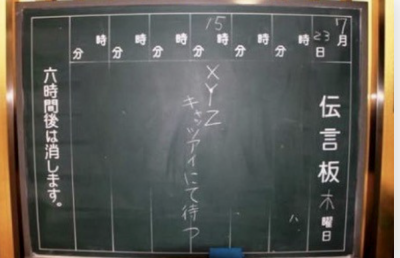 7月23日
伝言板 木曜日
時 分
時 分
時 分
15時 分
XYZ
キャッツアイにて待つ
時 分
時 分
時 分
六時間後は消します。